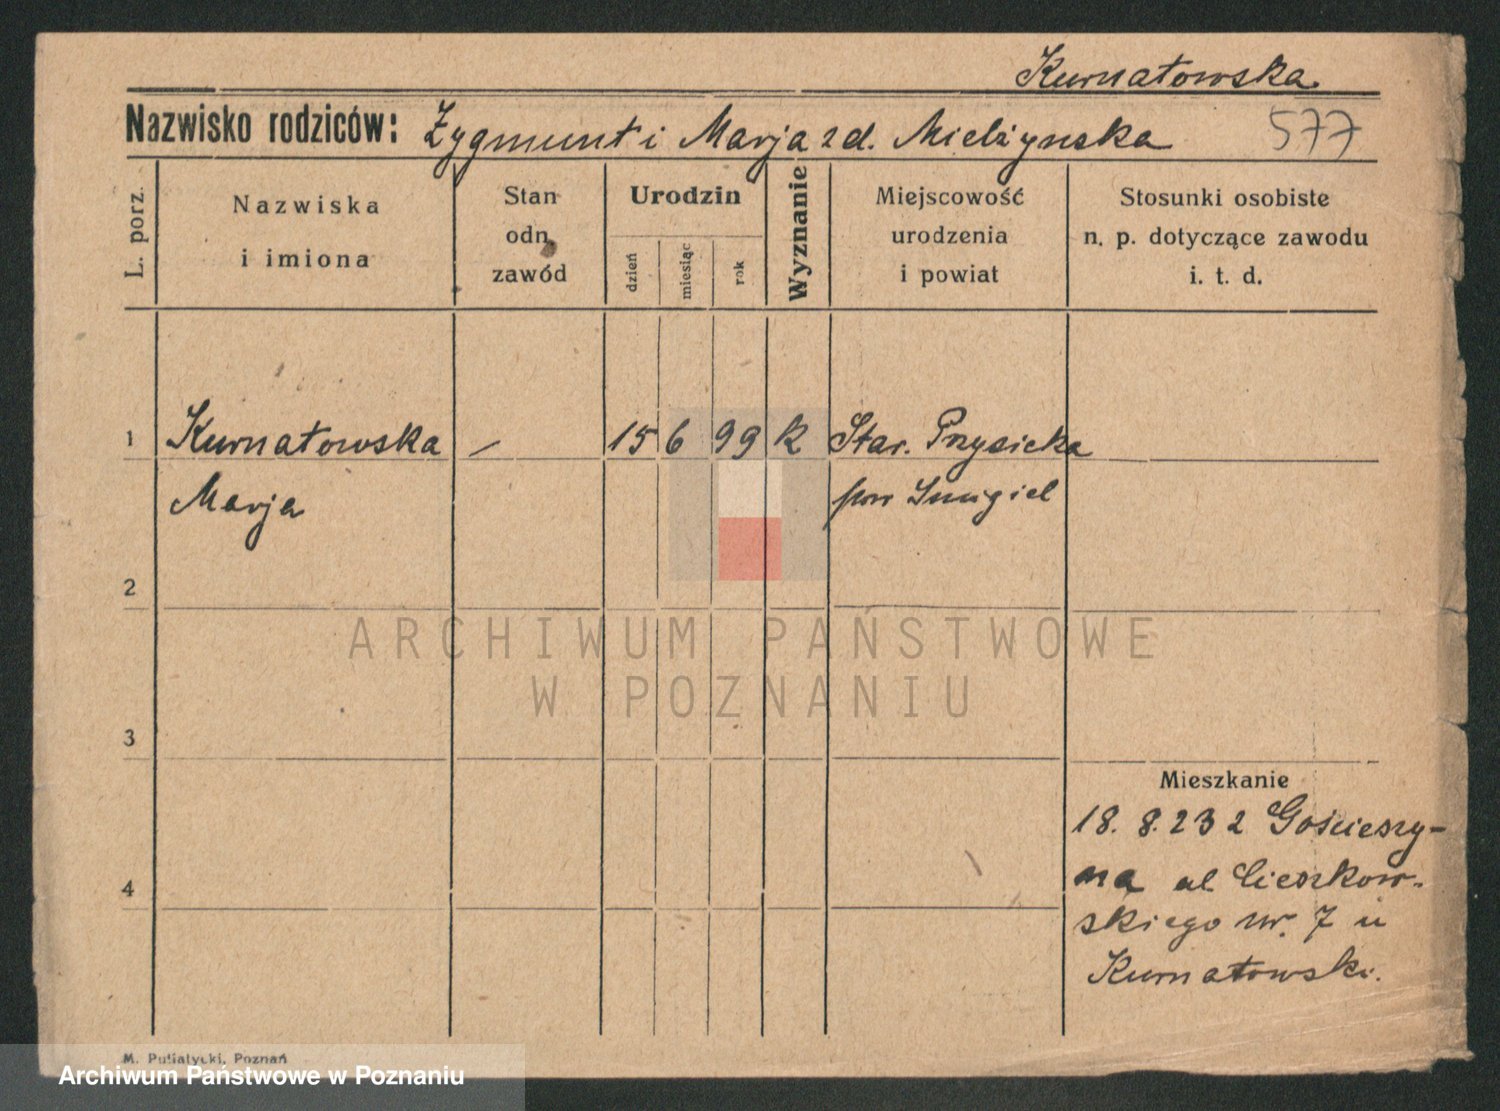 Kurnatowska
Nazwisko rodziców: Zygmunt i Marja z d. Mielżynska 577
L. porz.
Nazwiska
i imiona
Stan
odn.
zawód
Urodzin
dzień
miesiąc
rok
Wyznanie
Miejscowość
urodzenia
i powiat
Stosunki osobiste
n. p. dotyczące zawodu
i. t. d.
1 Kurnatowska – 15 6 99 k Star. Przysieka
Marja pow Smigiel
2
ARCHIWUM PAŃSTWOWE
W POZNANIU
3
Mieszkanie
18. 8. 23 z Gościeszy-
na ul. Cieszkow-
4
skiego nr. 7 u
Kurnatowski.
M. Putiatycki, Poznań
Archiwum Państwowe w Poznaniu